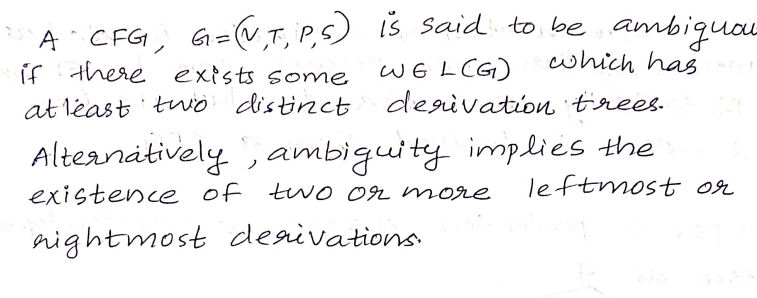 A CFG, G=(N,T,P,S) is said to be ambiguou
if there exists some w ∈ L(G) which has
atleast two distinct derivation trees.
Alternatively, ambiguity implies the
existence of two or more leftmost or
rightmost derivations.